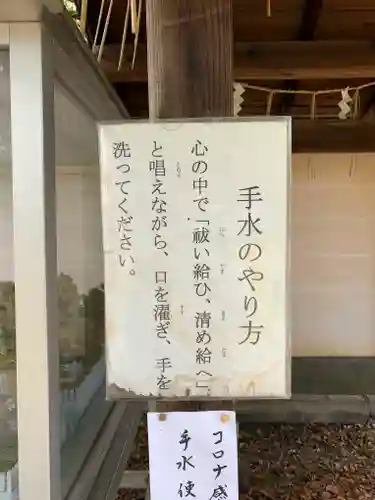 手水のやり方
心の中で「祓い給ひ、清め給へ」
と唱えながら、口を濯ぎ、手を
洗ってください。
コロナ感
手水使